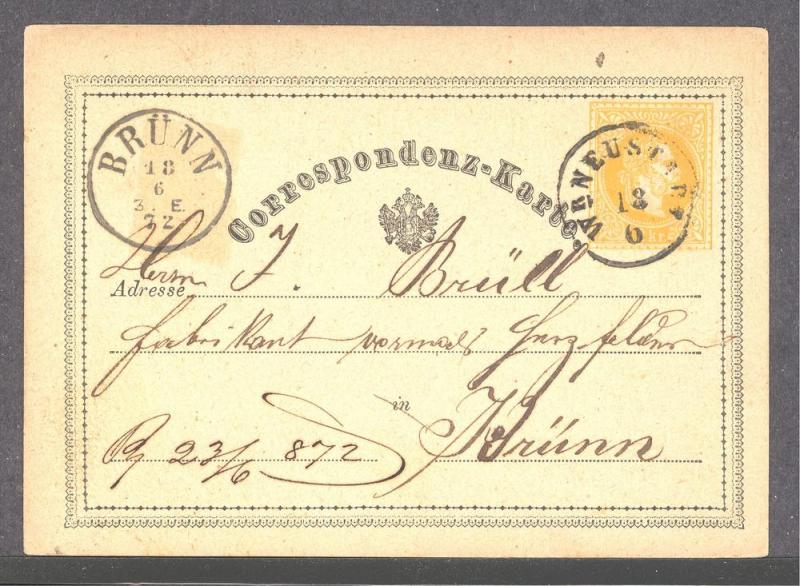 BRÜNN
18
6
3. E.
72
Correspondenz-Karte
WR NEUSTADT
18
6
Herrn J. Brüll
Adresse
Fabrikant vormals Herzfelder
in Brünn
23/6 872